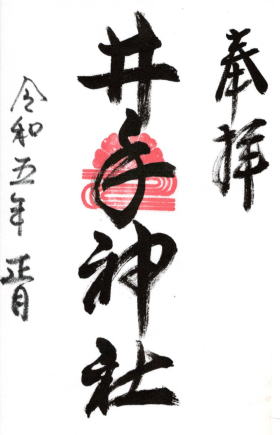 奉拝
井手神社
令和五年 正月